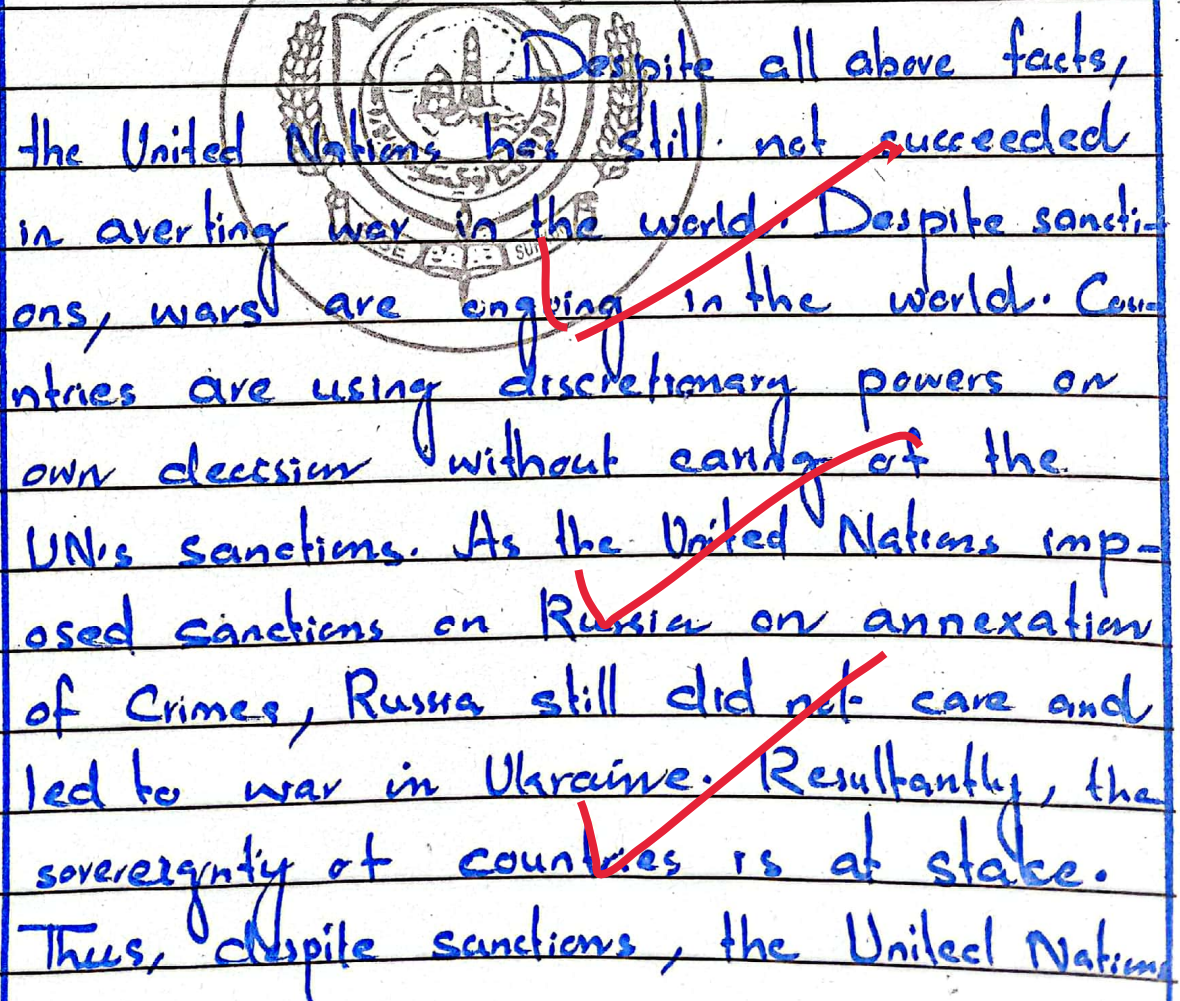 Despite all above facts,
the United Nations has still not succeeded
in averting war in the world. Despite sancti-
ons, wars are ongoing in the world. Cou-
ntries are using discretionary powers on
own decision without caring of the
UN's sanctions. As the United Nations imp-
osed sanctions on Russia on annexation
of Crimea, Russia still did not care and
led to war in Ukraine. Resultantly, the
sovereignty of countries is at stake.
Thus, despite sanctions, the United Nations